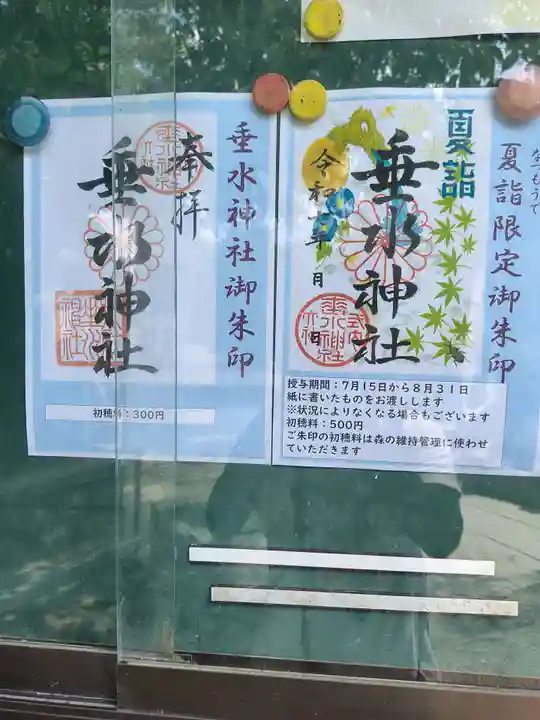 垂水神社御朱印
奉拝
垂水神社
初穂料：300円
なつもうで
夏詣限定御朱印
夏詣
垂水神社
令和 年 月 日
授与期間：７月１５日から８月３１日
紙に書いたものをお渡しします
※状況によりなくなる場合もございます
初穂料：500円
ご朱印の初穂料は森の維持管理に使わせ
ていただきます